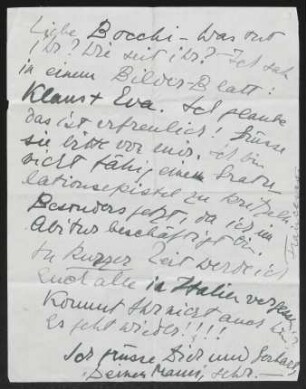 Liebe Bocchi – Was tut
ihr? Wie seit ihr? – Ich sah
in einem Bilder-Blatt:
Klaus + Eva. Ich glaube
das ist erfreulich! Grüsse
sie bitte von mir. Ich bin
nicht fähig einem Gratu-
lationsepistel zu kritzeln.
Besonders jetzt, da ich im
Abitur beschäftigt bin.
In kurzer Zeit werde ich
Euch alle in Italien
Kommt Ihr nicht auch hin?
Es geht wieder!!!!
Ich grüsse Dich und
Deinen Mann, sehr. –